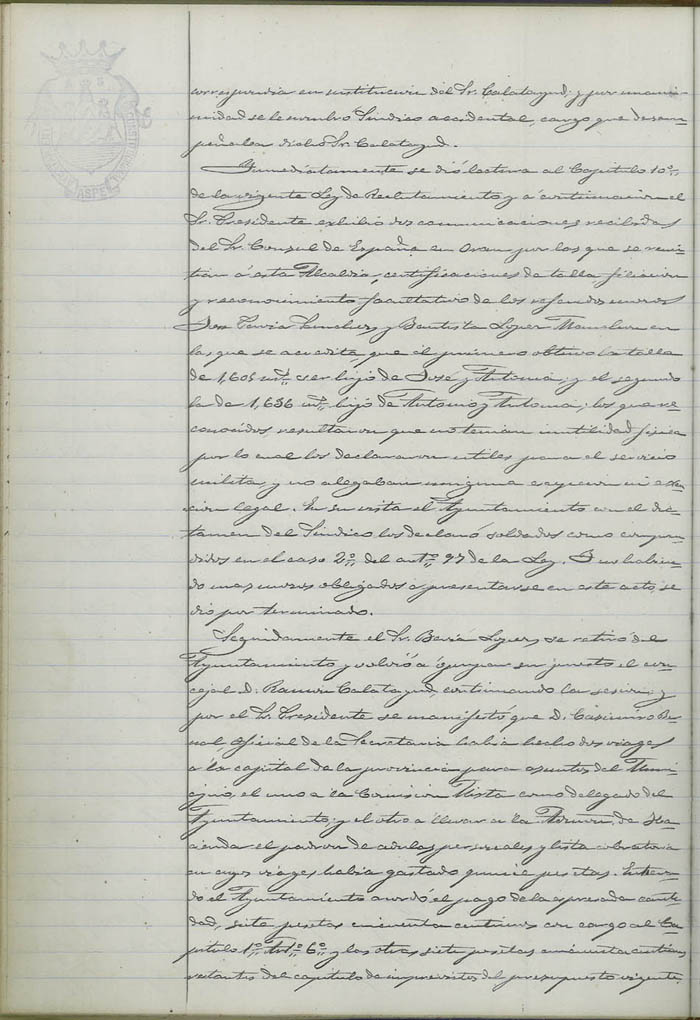 correspondia en sustitucion del Sr. Calatayud; y por unani-
midad se le nombró Sindico accidental, cargo que desem-
peñaba dicho Sr. Calatayud.
Inmediatamente se dió lectura al Capitulo 10º
de la vigente Ley de Reclutamiento y á continuacion el
Sr. Presidente exhibio dos comunicaciones recibidas
del Sr. Consul de España en Oran por las que se remi-
tian á esta Alcaldia, certificaciones de talla, filiacion
y reconocimiento facultativo de los referidos mozos
José Sanchez y Bautista Lopez en
las que se acredita, que el primero obtuvo la talla
de 1,605 mts. ser hijo de José y Antonia; y el segundo
la de 1,636 mts. hijo de Antonio y Antonia; los que re-
conocidos, resultaron que no tenian inutilidad fisica
por lo cual los declararon utiles para el servicio
militar, y no alegaban ninguna excepcion ni exen-
cion legal. En su vista el Ayuntamiento con el dic-
tamen del Sindico los declaró soldados como compren-
didos en el caso 2º del artº 97 de la Ley. I no habien-
do mas mozos obligados a presentarse en este acto, se
dio por terminado.
Seguidamente el Sr. Lopez, se retiró del
Ayuntamiento y volvió á ocupar su puesto el con-
cejal D. Ramon Calatayud, continuando la sesion; y
por el Sr. Presidente se manifestó que D. Casimiro
Oficial de la Secretaria habia hecho dos viages
a la capital de la provincia para asuntos del Muni-
cipio, el uno a la Comision Mixta como delegado del
Ayuntamiento; y el otro a llevar a la Admon. de Ha-
cienda el padron de cedulas personales y lista cobratoria
en cuyos viages habia gastado quince pesetas. Entera-
do el Ayuntamiento acordó el pago de la espresada canti-
dad, siete pesetas cincuenta centimos con cargo al Ca-
pitulo 1º Artº 6º y las otras siete pesetas cincuenta centimos
restantes del capitulo de imprevistos del presupuesto vigente.